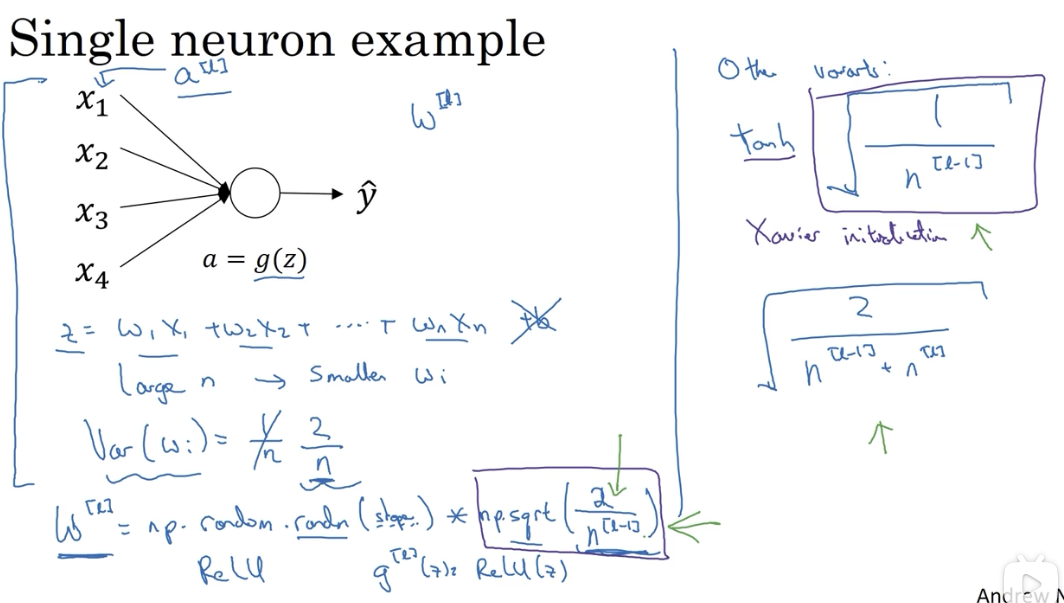 Single neuron example
x₁
a^[l]
x₂
x₃
x₄
ŷ
a = g(z)
w^[l]
z = w₁x₁ + w₂x₂ + ..... + wₙxₙ +b
Large n → Smaller wᵢ
Var(wᵢ) = 1/n 2/n
W^[l] = np.random.randn(shape) * np.sqrt(2/n^[l-1])
ReLU g^[l](z) = ReLU(z)
Other variants:
tanh √(1/n^[l-1])
Xavier initialization
√(2/(n^[l-1] + n^[l]))
Andrew N